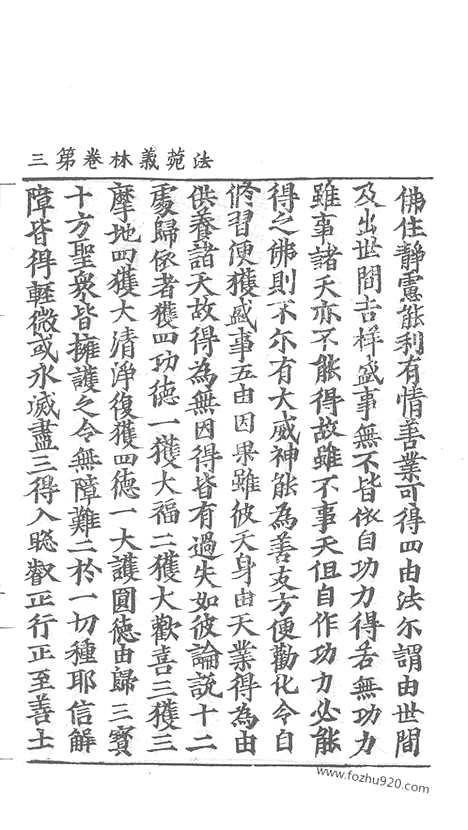 法苑義林卷第三
佛住靜慮能利有情善業可得四由法尒謂由世間
及出世間吉祥盛事無不皆依自功力得若無功力
雖事諸天亦不能得故雖不事天但自作功力必能
得之佛則不尒有大威神能為善友方便勸化令自
修習便獲盛事五由因果雖彼天身由天業得為由
供養諸天故得為無因得皆有過失如彼論說十二
處歸依者獲四功德一獲大福二獲大歡喜三獲三
摩地四獲大清淨復獲四德一大護圓德由歸三寶
十方聖衆皆擁護之令無障難二於一切種耶信解
障皆得輕微或永滅盡三得入聦叡正行正至善士
www.fozhu920.com